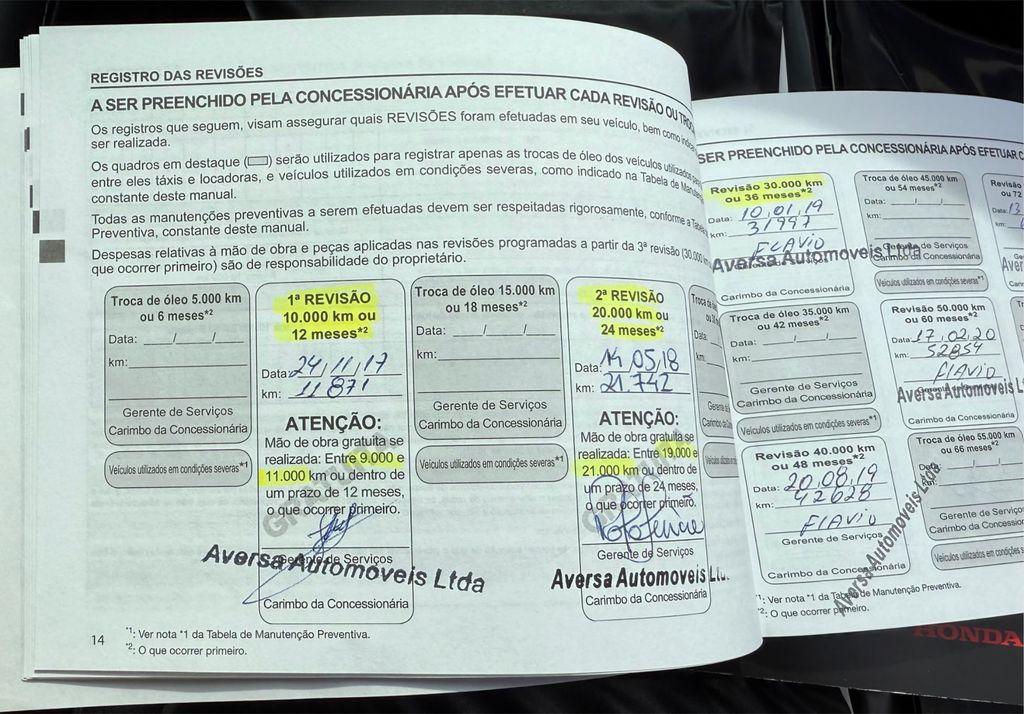 REGISTRO DAS REVISÕES
A SER PREENCHIDO PELA CONCESSIONÁRIA APÓS EFETUAR CADA REVISÃO OU
Os registros que seguem, visam assegurar quais REVISÕES foram efetuadas em seu veículo, bem como
ser realizada.
Os quadros em destaque ( ) serão utilizados para registrar apenas as trocas de óleo dos veículos utilizados
entre eles táxis e locadoras, e veículos utilizados em condições severas, como indicado na Tabela de
constante deste manual.
Todas as manutenções preventivas a serem efetuadas devem ser respeitadas rigorosamente, conforme a
Preventiva, constante deste manual.
Despesas relativas à mão de obra e peças aplicadas nas revisões programadas a partir da 3ª revisão (30.000 km
que ocorrer primeiro) são de responsabilidade do proprietário.
Troca de óleo 5.000 km
ou 6 meses*2
Data: ___/___/___
km:
Gerente de Serviços
Carimbo da Concessionária
Veículos utilizados em condições severas*1
1ª REVISÃO
10.000 km ou
12 meses*2
Data: 24/11/17
km: 11871
ATENÇÃO:
Mão de obra gratuita se
realizada: Entre 9.000 e
11.000 km ou dentro de
um prazo de 12 meses,
o que ocorrer primeiro.
GRATUITA
Gerente de Serviços
Aversa Automóveis Ltda
Carimbo da Concessionária
Troca de óleo 15.000 km
ou 18 meses*2
Data: ___/___/___
km:
Gerente de Serviços
Carimbo da Concessionária
Veículos utilizados em condições severas*1
2ª REVISÃO
20.000 km ou
24 meses*2
Data: 14/05/18
km: 21.742
ATENÇÃO:
Mão de obra gratuita se
realizada: Entre 19.000 e
21.000 km ou dentro de
um prazo de 24 meses,
o que ocorrer primeiro.
Gerente de Serviços
Aversa Automoveis
Carimbo da Concessionária
14
*1: Ver nota *1 da Tabela de Manutenção Preventiva.
*2: O que ocorrer primeiro.
SER PREENCHIDO PELA CONCESSIONÁRIA APÓS EFETUAR
Revisão 30.000 km
ou 36 meses*2
Data: 10/01/19
km: 31997
FLAVIO
Aversa Automoveis Ltda
Carimbo da Concessionária
Troca de óleo 35.000 km
ou 42 meses*2
Data: ___/___/___
km:
Gerente de Serviços
Carimbo da Concessionária
Veículos utilizados em condições severas*1
Revisão 40.000 km
ou 48 meses*2
Data: 20/08/19
km: 42628
FLAVIO
Gerente de Serviços
Carimbo da Concessionária
Aversa Automoveis Ltda
Troca de óleo 45.000 km
ou 54 meses*2
Data: ___/___/___
km:
Gerente de Serviços
Carimbo da Concessionária
Veículos utilizados em condições severas*1
Revisão 50.000 km
ou 60 meses*2
Data: 17/02/20
km: 52854
FLAVIO
Aversa Automoveis
Carimbo da Concessionária
Troca de óleo 55.000 km
ou 66 meses*2
km:
Gerente de Serviços
Carimbo da
Veículos utilizados em condições
Revisão
ou 72
Data: 13
*1: Ver nota *1 da Tabela de Manutenção Preventiva.
*2: O que ocorrer primeiro.
HONDA